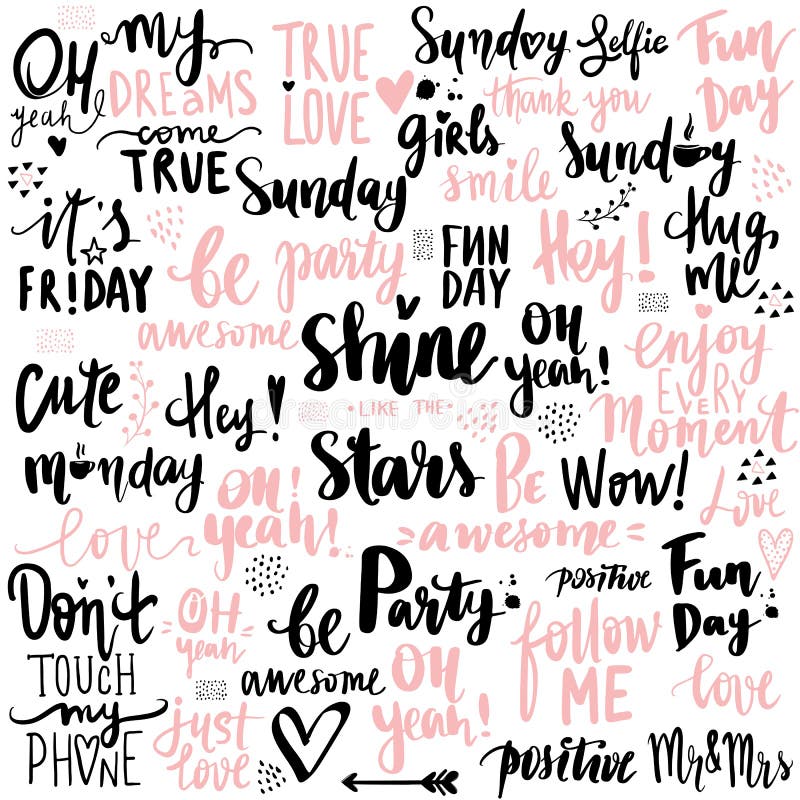 OH
yeah
my
DREAMS
come
TRUE
TRUE
LOVE
Sunday Selfie
thank you
Fun
Day
girls
smile
Sunday
Sunday
it's
FRIDAY
be party
awesome
FUN
DAY
Hey!
Hug
me
Shine
LIKE THE
Stars
OH
yeah!
enjoy
EVERY
Moment
Cute
Hey!
monday
OH!
yeah!
Be
awesome
Wow!
Love
love
Don't
TOUCH
my
PHONE
OH
yeah
be
awesome
Party
positive
Fun
Day
follow
ME
love
just
love
OH
yeah!
positive
Mr&Mrs